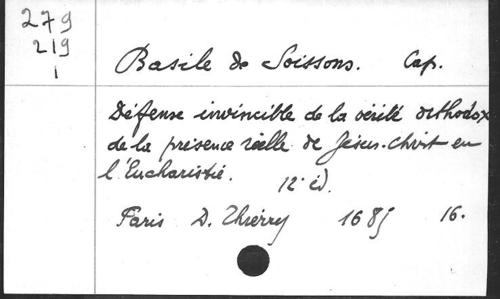 279
219
1
Basile de Soissons. Cap.
Défense invincible de la vérité orthodox
de la présence réelle de Jésus-Christ en
l'Eucharistie. 12° éd.
Paris D. Thierry 1685 16.